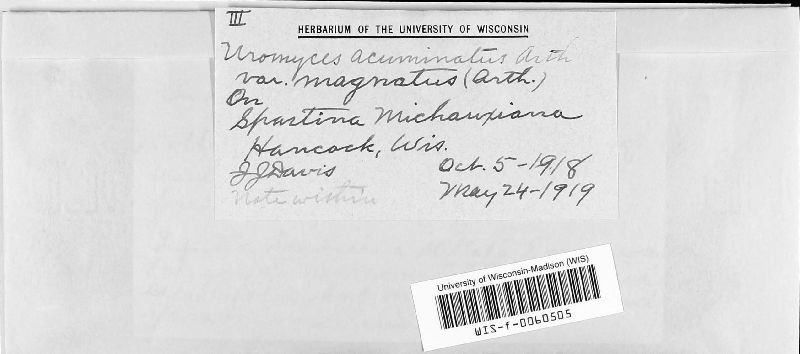 III
HERBARIUM OF THE UNIVERSITY OF WISCONSIN
Uromyces acuminatus Arth
var. magnatus (Arth.)
On
Spartina Michauxiana
Hancock, Wis.
JJDavis
Oct. 5-1918
May 24-1919
Note within
University of Wisconsin-Madison (WIS)
WIS-f-0060505